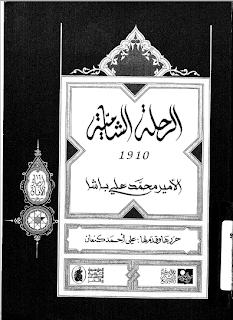 الرحلة الشامية
1910
الأمير محمد علي باشا
حررها وقدم لها: علي أحمد كنعان